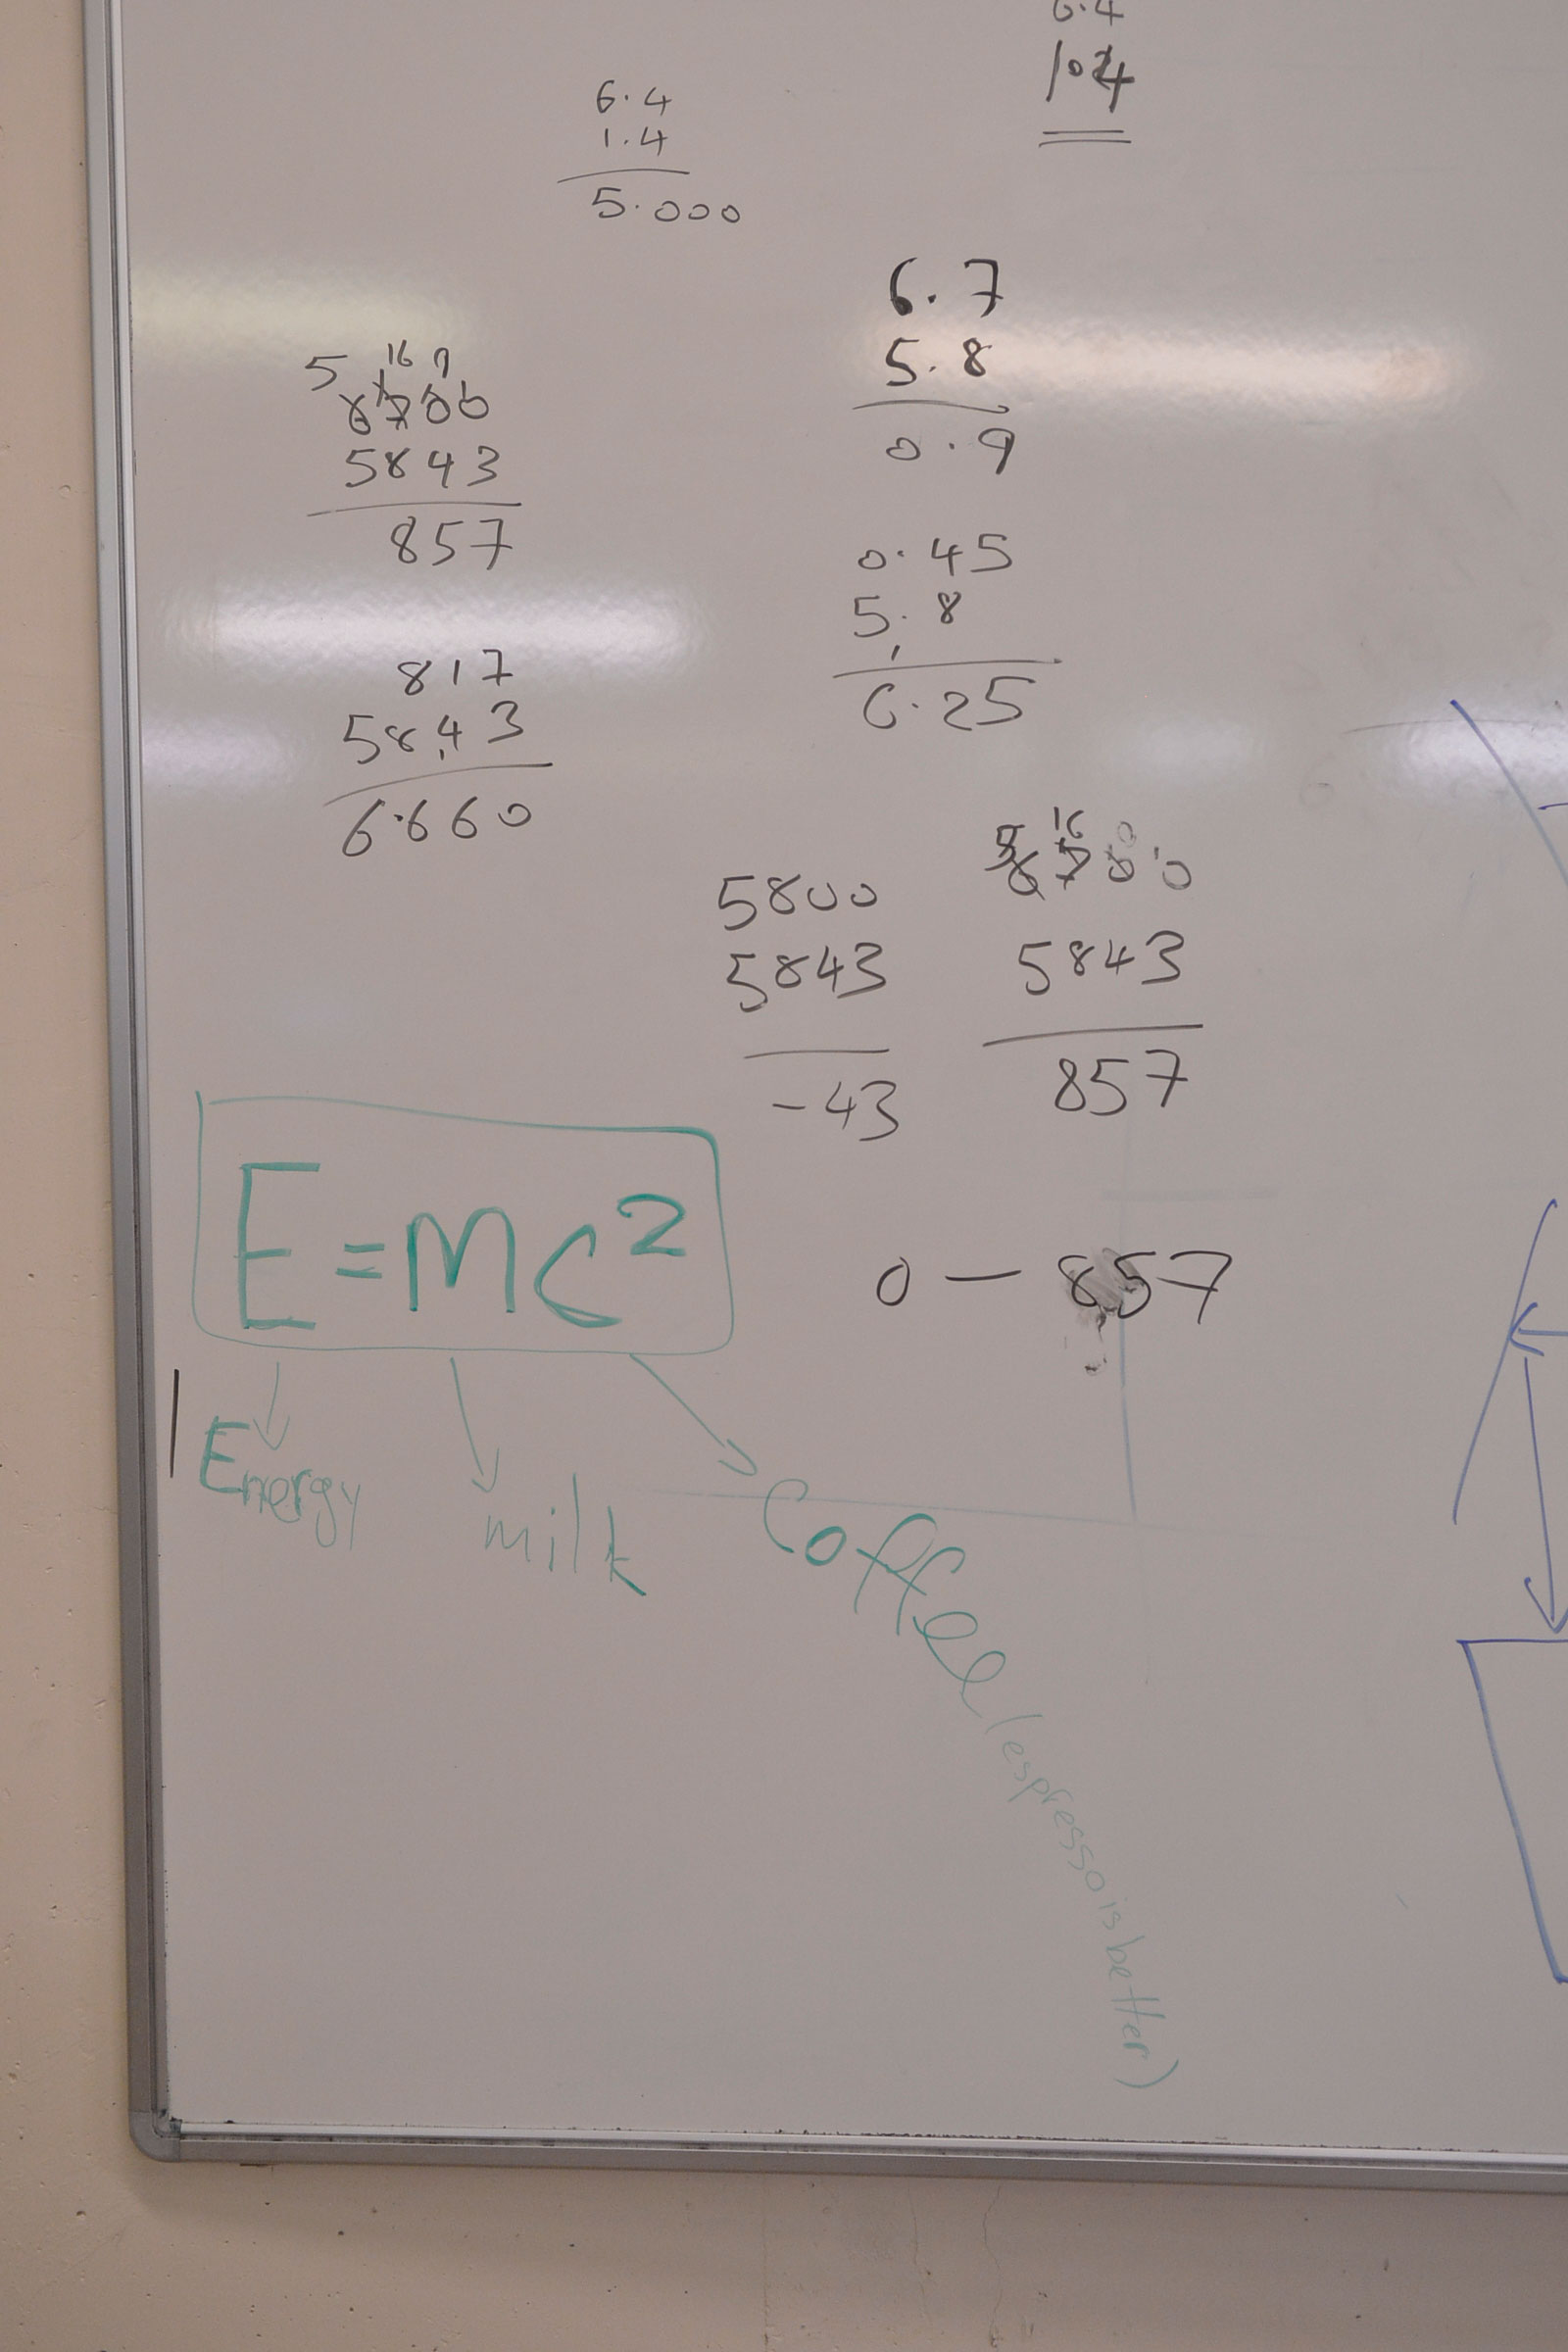 6.4
104
6.4
1.4
5.000
6.7
5.8
0.9
5 16 9
6700
5843
857
0.45
5.8
6.25
817
5843
6.660
5 16
6700
5843
857
5800
5843
-43
E=MC²
0 — 857
Energy
milk
Coffee (espresso is better)